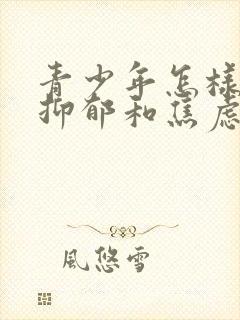 青少年怎样
抑郁和焦虑
風悠雪